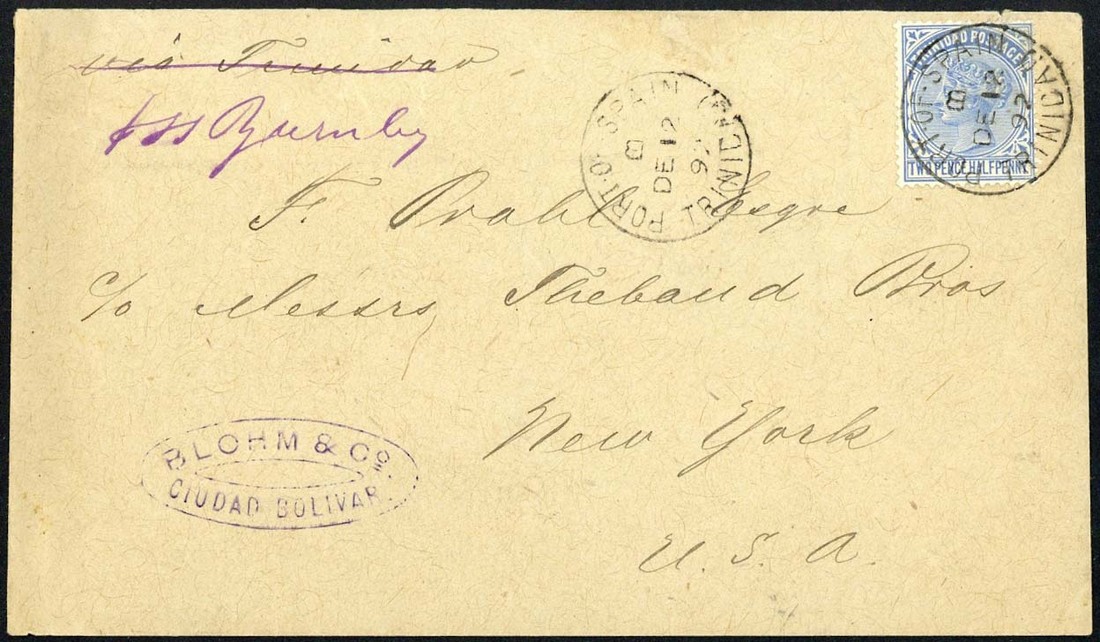 via Trinidad
PORT-OF SPAIN TRINIDAD
B
DE 12
92
TRINIDAD POSTAGE
TWO PENCE HALFPENNY
PORT-OF-SPAIN TRINIDAD
B
DE 12
92
F. Prahl Esqre
c/o Messrs Thebaud Bros
New York
U.S.A.
BLOHM & Co.
CIUDAD BOLIVAR.